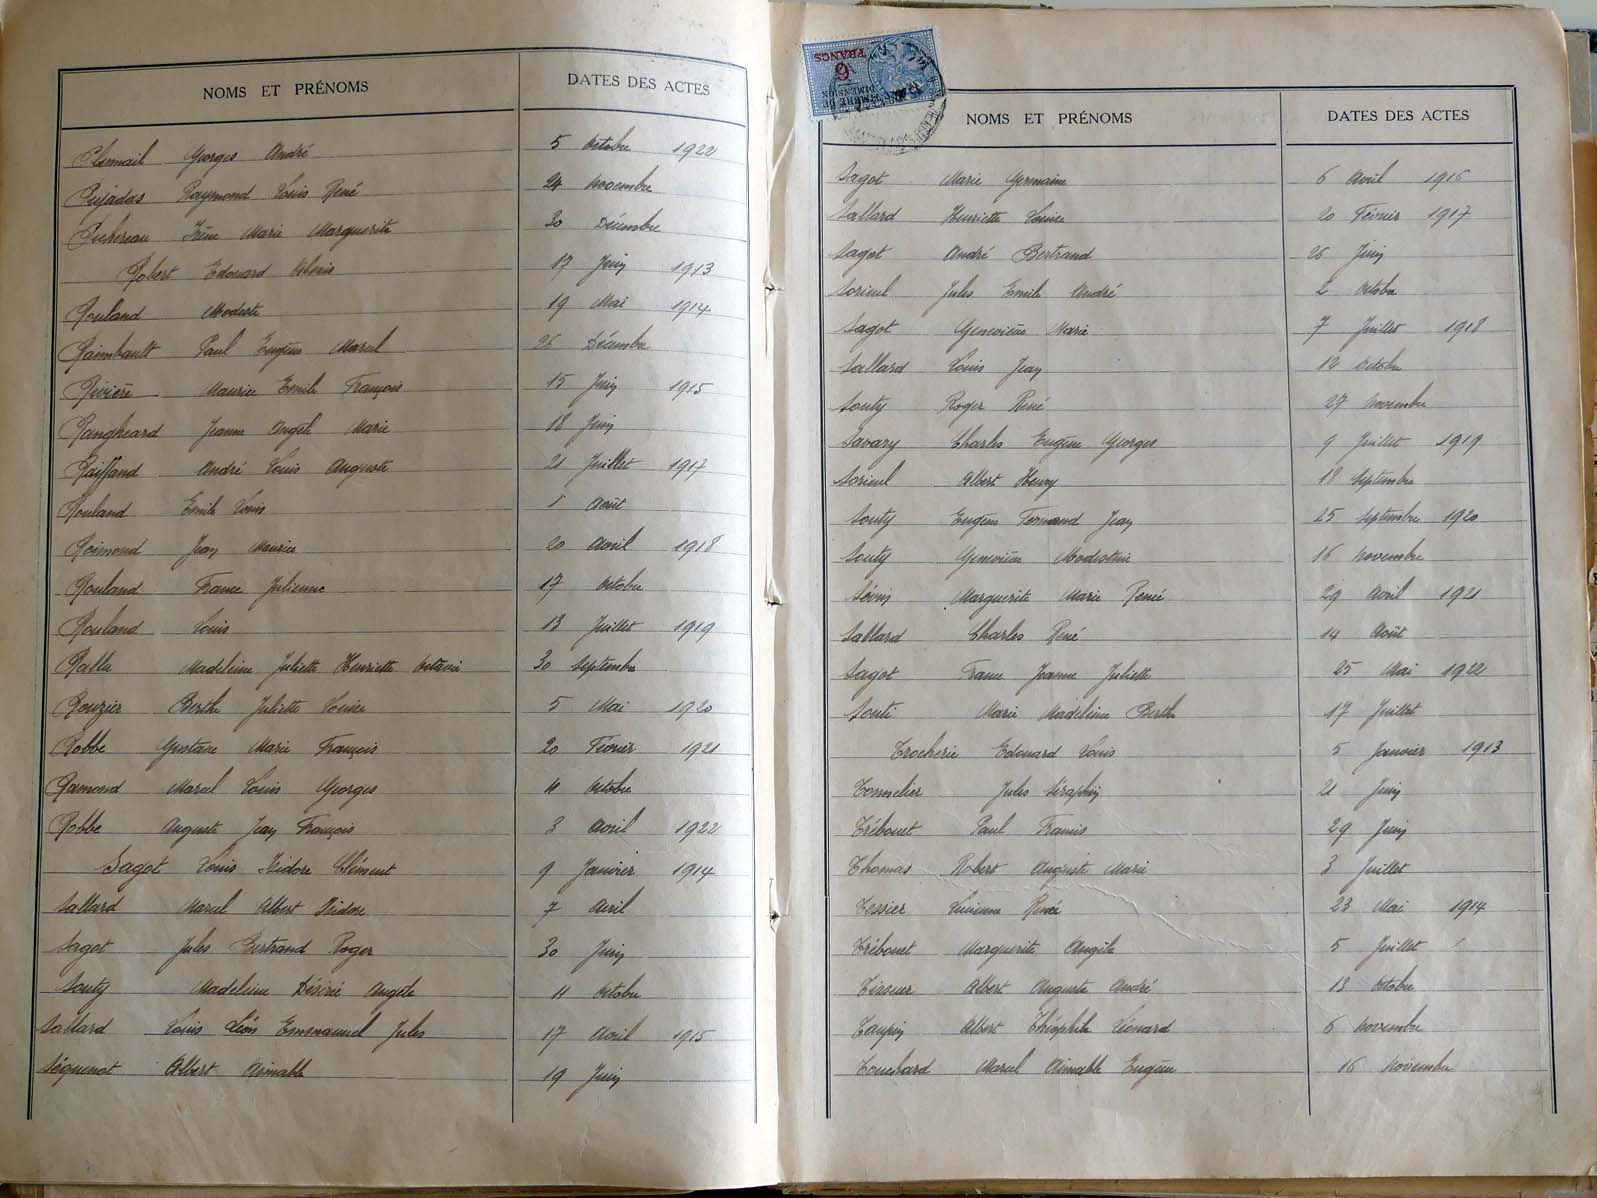 NOMS ET PRÉNOMS DATES DES ACTES
Plumail Georges André 5 Octobre 1922
Pujadas Raymond Louis René 24 Novembre
Pichereau Irène Marie Marguerite 30 Décembre
Robert Edouard Alexis 17 Juin 1913
Rouland Modeste 19 Mai 1914
Raimbault Paul Eugène Marcel 26 Décembre
Rivière Maurice Emile François 15 Juin 1915
Rangheard Jeanne Angèle Marie 18 Juin
Raiffaud André Louis Auguste 21 Juillet 1917
Rouland Emile Louis 1 Août
Raimond Jean Maurice 20 Avril 1918
Rouland France Julienne 17 Octobre
Rouland Louis 13 Juillet 1919
Rallu Madeleine Juliette Henriette Octavie 30 Septembre
Rouzier Berthe Juliette Louise 5 Mai 1920
Robbe Gustave Marie François 20 Février 1921
Ramond Marcel Louis Georges 11 Octobre
Robbe Auguste Jean François 3 Avril 1922
Sagot Louis Isidore Clément 9 Janvier 1914
Sallard Marcel Albert Isidore 7 Avril
Sagot Jules Bertrand Roger 30 Juin
Souty Madeleine Désiré Angèle 11 Octobre
Sallard Louis Léon Emmanuel Jules 17 Avril 1915
Séguenot Albert Aimable 19 Juin
6 FRANCS
DIMENSION
NOMS ET PRÉNOMS DATES DES ACTES
Sagot Marie Germaine 6 Avril 1916
Sallard Henriette Louise 20 Février 1917
Sagot André Bertrand 26 Juin
Sorieul Jules Emile André 2 Octobre
Sagot Geneviève Marie 7 Juillet 1918
Sallard Louis Jean 12 Octobre
Souty Roger René 27 Novembre
Savary Charles Eugène Georges 9 Juillet 1919
Sorieul Albert Henry 18 Septembre
Souty Eugène Fernand Jean 25 Septembre 1920
Souty Geneviève Modestine 16 Novembre
Marguerite Marie Renée 29 Avril 1921
Sallard Charles René 14 Août
Sagot France Jeanne Juliette 25 Mai 1922
Souti Marie Madeleine Berthe 17 Juillet
Trocherie Edouard Louis 5 Janvier 1913
Tonnelier Jules Séraphin 21 Juin
Trébouet Paul Francis 29 Juin
Thomas Robert Auguste Marie 3 Juillet
Tessier Lucienne Renée 23 Mai 1914
Trébouet Marguerite Angèle 5 Juillet
Tisseur Albert Auguste André 13 Octobre
Taupin Albert Théophile Léonard 6 Novembre
Touchard Marcel Aimable Eugène 16 Novembre